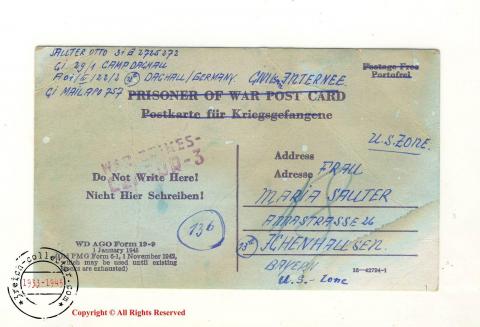 SALLTER OTTO 31 G 2725272
CI 29/1 CAMP DACHAU
DACHAU/GERMANY. CIVIL INTERNEE.
CI MAIL APO 757
Postage Free
Portofrei
PRISONER OF WAR POST CARD
Postkarte für Kriegsgefangene
U.S. ZONE.
WAR CRIMES-
Do Not Write Here!
Nicht Hier Schreiben!
Address
Adresse
FRAU
MARIA SALLTER
ANNASTRASSE 26
(13b) ICHENHAUSEN.
BAYERN
U.S.-Zone
13b
WD AGO Form 19-9
1 January 1945
PMG Form 6-1, 1 November 1943,
which may be used until existing
stocks are exhausted)
16—42794-1
1933-1945
Copyright © All Rights Reserved